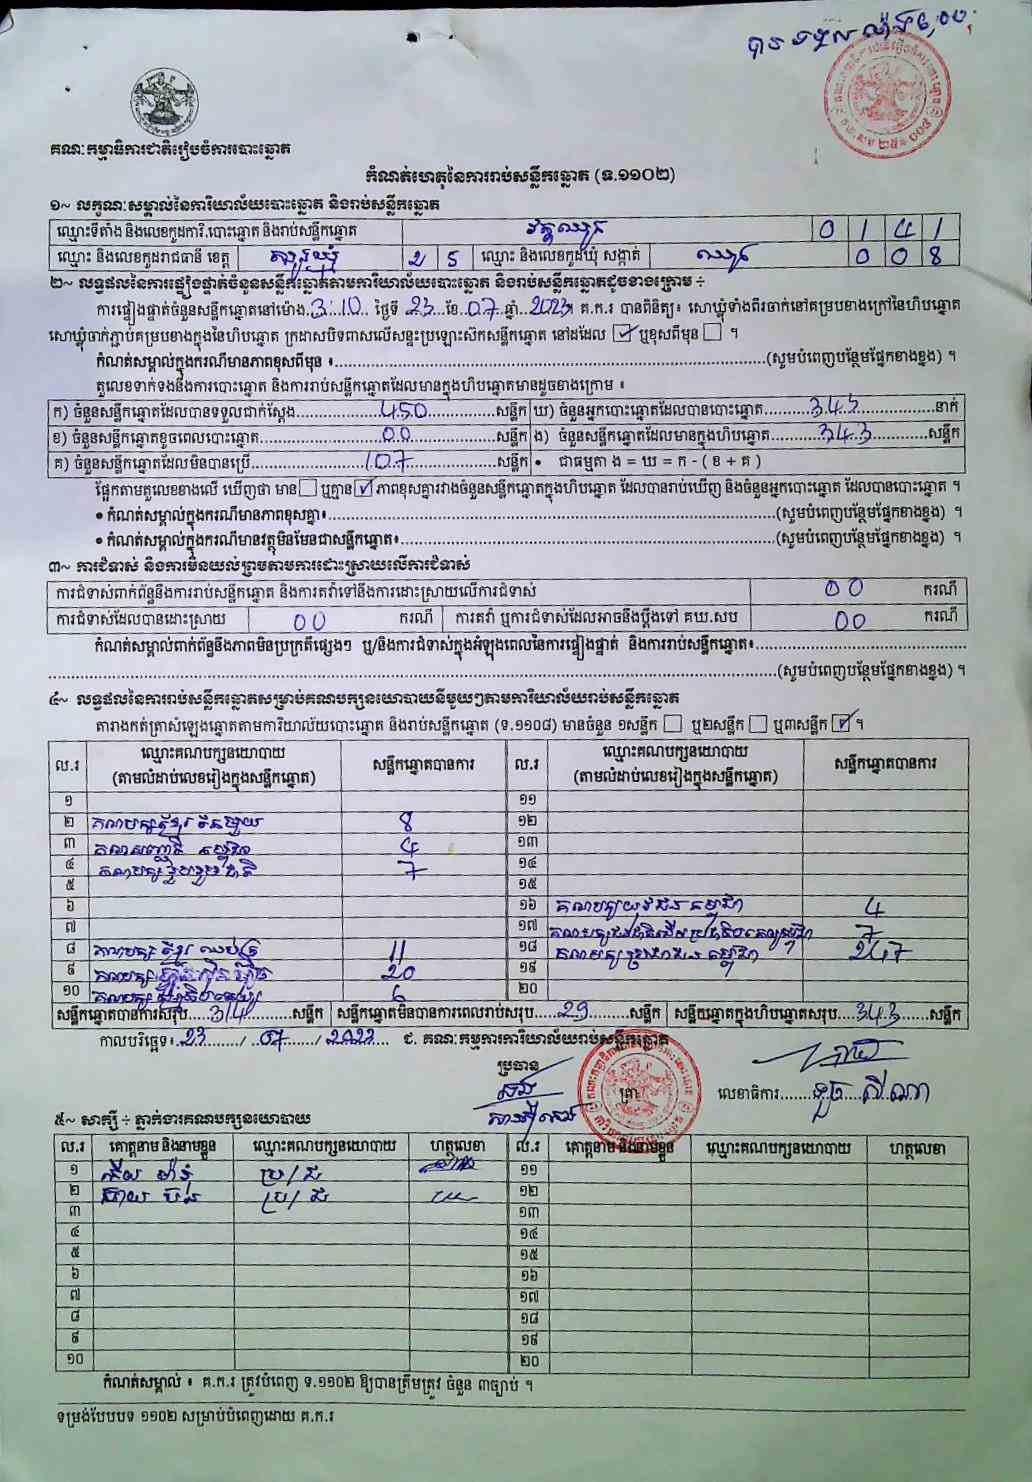 បានទទួលម៉ោង ៤,០០
គណៈកម្មាធិការជាតិរៀបចំការបោះឆ្នោត
កំណត់ហេតុនៃការរាប់សន្លឹកឆ្នោត (ទ.១១០២)
១~ លក្ខណៈសម្គាល់នៃការិយាល័យបោះឆ្នោត និងរាប់សន្លឹកឆ្នោត
ឈ្មោះទីតាំង និងលេខកូដការិ.បោះឆ្នោត និងរាប់សន្លឹកឆ្នោត វត្តឈូក 0 1 4 1
ឈ្មោះ និងលេខកូដរាជធានី ខេត្ត ត្បូងឃ្មុំ 2 5 ឈ្មោះ និងលេខកូដឃុំ សង្កាត់ ឈូក 0 0 8
២~ លទ្ធផលនៃការផ្ទៀងផ្ទាត់ចំនួនសន្លឹកឆ្នោតតាមការិយាល័យបោះឆ្នោត និងរាប់សន្លឹកឆ្នោតដូចខាងក្រោម ÷
ការផ្ទៀងផ្ទាត់ចំនួនសន្លឹកឆ្នោតនៅម៉ោង 3:10 ថ្ងៃទី 23 ខែ 07 ឆ្នាំ 2023 គ.ក.រ បានពិនិត្យ៖ សោឃ្លុំទាំងពីរចាក់នៅគម្របខាងក្រៅនៃហិបឆ្នោត
សោឃ្លុំចាក់ភ្ជាប់គម្របខាងក្នុងនៃហិបឆ្នោត ក្រដាសបិទពាសលើសន្ទះប្រឡោះស៊កសន្លឹកឆ្នោត នៅដដែល ☑ ឬខុសពីមុន ☐ ។
កំណត់សម្គាល់ក្នុងករណីមានភាពខុសពីមុន ៖ (សូមបំពេញបន្ថែមផ្នែកខាងខ្នង) ។
តួលេខទាក់ទងនឹងការបោះឆ្នោត និងការរាប់សន្លឹកឆ្នោតដែលមានក្នុងហិបឆ្នោតមានដូចខាងក្រោម ៖
ក) ចំនួនសន្លឹកឆ្នោតដែលបានទទួលជាក់ស្តែង 450 សន្លឹក ឃ) ចំនួនអ្នកបោះឆ្នោតដែលបានបោះឆ្នោត 343 នាក់
ខ) ចំនួនសន្លឹកឆ្នោតខូចពេលបោះឆ្នោត 00 សន្លឹក ង) ចំនួនសន្លឹកឆ្នោតដែលមានក្នុងហិបឆ្នោត 343 សន្លឹក
គ) ចំនួនសន្លឹកឆ្នោតដែលមិនបានប្រើ 107 សន្លឹក • ជាធម្មតា ង = ឃ = ក - ( ខ + គ )
ផ្អែកតាមតួលេខខាងលើ ឃើញថា មាន ☐ ឬគ្មាន ☑ ភាពខុសគ្នារវាងចំនួនសន្លឹកឆ្នោតក្នុងហិបឆ្នោត ដែលបានរាប់ឃើញ និងចំនួនអ្នកបោះឆ្នោត ដែលបានបោះឆ្នោត ។
• កំណត់សម្គាល់ក្នុងករណីមានភាពខុសគ្នា៖ (សូមបំពេញបន្ថែមផ្នែកខាងខ្នង) ។
• កំណត់សម្គាល់ក្នុងករណីមានវត្ថុមិនមែនជាសន្លឹកឆ្នោត៖ (សូមបំពេញបន្ថែមផ្នែកខាងខ្នង) ។
៣~ ការជំទាស់ និងការមិនយល់ព្រមតាមការដោះស្រាយលើការជំទាស់
ការជំទាស់ពាក់ព័ន្ធនឹងការរាប់សន្លឹកឆ្នោត និងការតវ៉ាទៅនឹងការដោះស្រាយលើការជំទាស់ 00 ករណី
ការជំទាស់ដែលបានដោះស្រាយ 00 ករណី ការតវ៉ា ឬការជំទាស់ដែលអាចនឹងប្តឹងទៅ គឃ.សប 00 ករណី
កំណត់សម្គាល់ពាក់ព័ន្ធនឹងភាពមិនប្រក្រតីផ្សេងៗ ឬ/និងការជំទាស់ក្នុងអំឡុងពេលនៃការផ្ទៀងផ្ទាត់ និងការរាប់សន្លឹកឆ្នោត៖
(សូមបំពេញបន្ថែមផ្នែកខាងខ្នង) ។
៤~ លទ្ធផលនៃការរាប់សន្លឹកឆ្នោតសម្រាប់គណបក្សនយោបាយនីមួយៗតាមការិយាល័យរាប់សន្លឹកឆ្នោត
តារាងកត់ត្រាសំឡេងឆ្នោតតាមការិយាល័យបោះឆ្នោត និងរាប់សន្លឹកឆ្នោត (ទ.១១០៨) មានចំនួន ១សន្លឹក ☐ ឬ២សន្លឹក ☐ ឬ៣សន្លឹក ☑ ។
ល.រ ឈ្មោះគណបក្សនយោបាយ (តាមលំដាប់លេខរៀងក្នុងសន្លឹកឆ្នោត) សន្លឹកឆ្នោតបានការ ល.រ ឈ្មោះគណបក្សនយោបាយ (តាមលំដាប់លេខរៀងក្នុងសន្លឹកឆ្នោត) សន្លឹកឆ្នោតបានការ
១ ១១
២ 8 ១២
៣ 4 ១៣
៤ 7 ១៤
៥ ១៥
៦ ១៦ គណបក្សយុវជនកម្ពុជា 4
៧ ១៧ 7
៨ 11 ១៨ គណបក្សប្រជាជនកម្ពុជា 247
៩ គណបក្សហ្វ៊ុនស៊ិនប៉ិច 20 ១៩
១០ 6 ២០
សន្លឹកឆ្នោតបានការសរុប 314 សន្លឹក សន្លឹកឆ្នោតមិនបានការពេលរាប់សរុប 29 សន្លឹក សន្លឹកឆ្នោតក្នុងហិបឆ្នោតសរុប 343 សន្លឹក
កាលបរិច្ឆេទ៖ 23 / 07 / 2023 ជ. គណៈកម្មការការិយាល័យរាប់សន្លឹកឆ្នោត
ប្រធាន
ត្រា
លេខាធិការ ទូច ស៊ីណា
៥~ សាក្សី ÷ ភ្នាក់ងារគណបក្សនយោបាយ
ល.រ គោត្តនាម និងនាមខ្លួន ឈ្មោះគណបក្សនយោបាយ ហត្ថលេខា ល.រ គោត្តនាម និងនាមខ្លួន ឈ្មោះគណបក្សនយោបាយ ហត្ថលេខា
១ ប្រ/ជ ១១
២ ប្រ/ជ ១២
៣ ១៣
៤ ១៤
៥ ១៥
៦ ១៦
៧ ១៧
៨ ១៨
៩ ១៩
១០ ២០
កំណត់សម្គាល់ ៖ គ.ក.រ ត្រូវបំពេញ ទ.១១០២ ឱ្យបានត្រឹមត្រូវ ចំនួន ៣ច្បាប់ ។
ទម្រង់បែបបទ ១១០២ សម្រាប់បំពេញដោយ គ.ក.រ